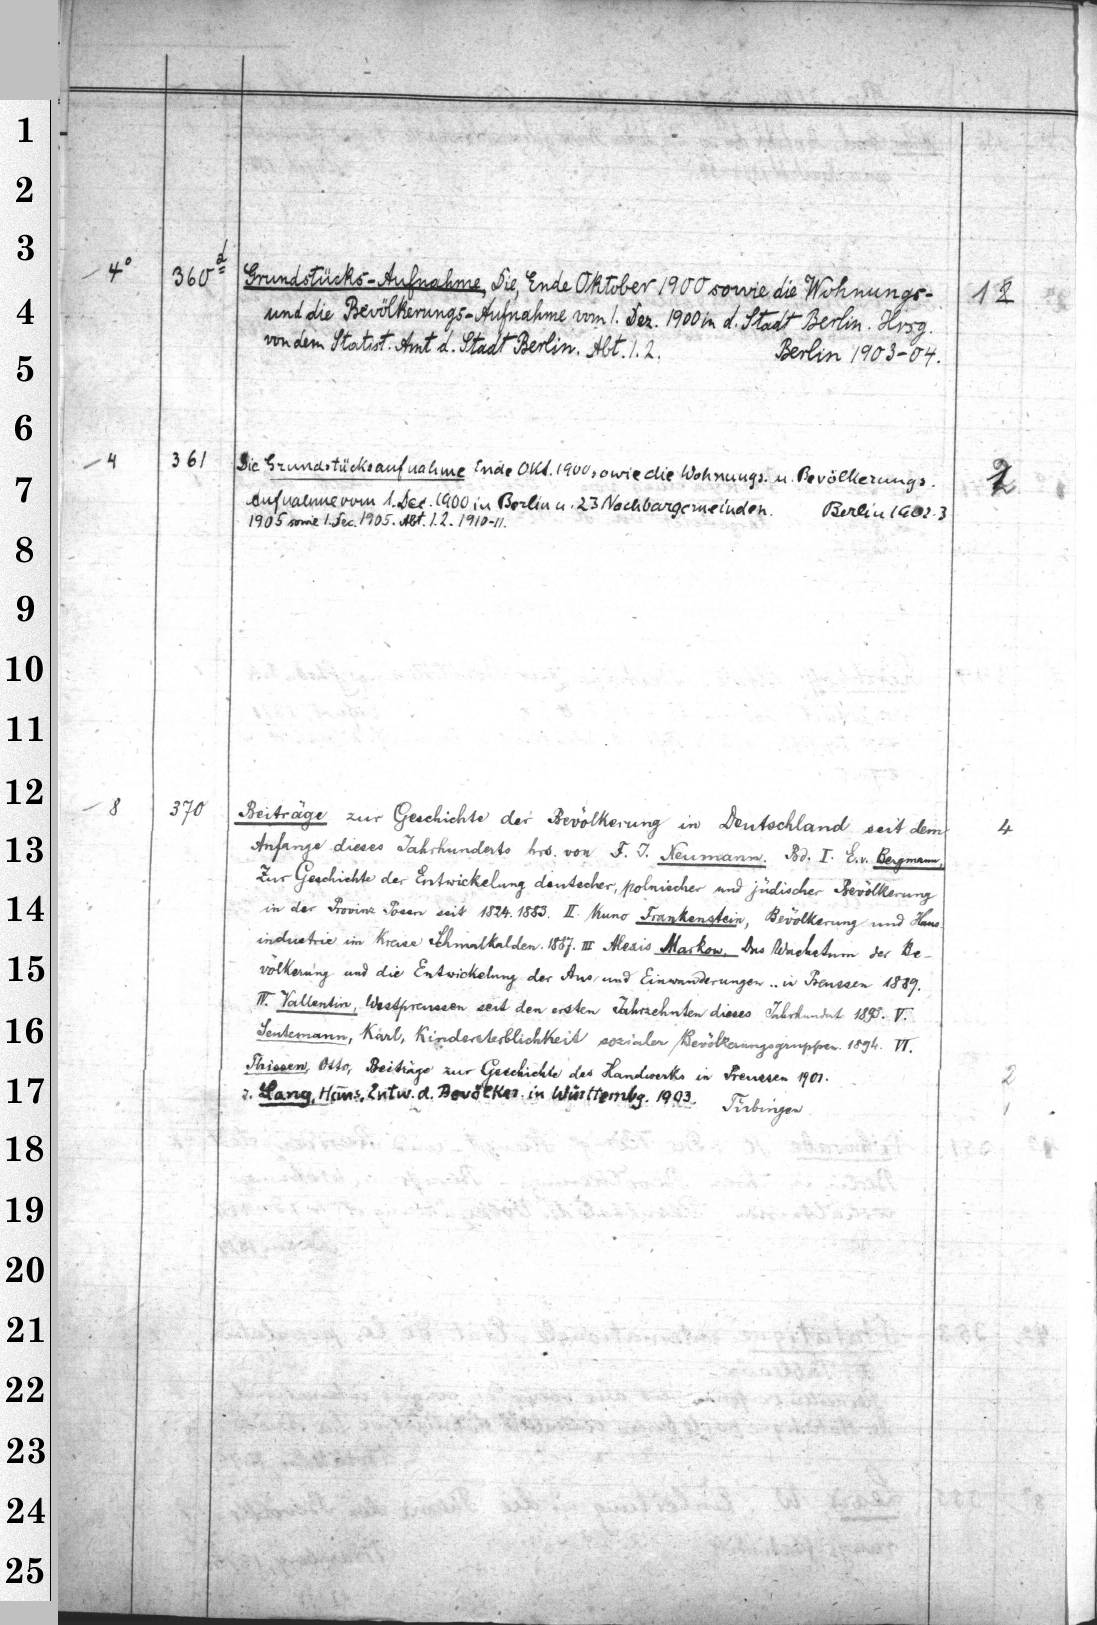 1
2
3
4° 360d Grundstücks-Aufnahme, Die, Ende Oktober 1900 sowie die Wohnungs- 12
4
und die Bevölkerungs-Aufnahme vom 1. Dez. 1900 in d. Stadt Berlin. Hrsg.
von dem Statist. Amt d. Stadt Berlin. Abt. 1. 2. Berlin 1903-04.
5
6
4 361 Die Grundstücksaufnahme Ende Okt. 1900, sowie die Wohnungs- u. Bevölkerungs- 2
7
Aufnahme vom 1. Dez. 1900 in Berlin u. 23 Nachbargemeinden. Berlin 1902.3
1905 sowie 1. Dez. 1905. Abt. 1. 2. 1910-11.
8
9
10
11
12
8 370 Beiträge zur Geschichte der Bevölkerung in Deutschland seit dem 4
13
Anfange dieses Jahrhunderts hrs. von F. J. Neumann. Bd. I. E. v. Bergmann,
Zur Geschichte der Entwickelung deutscher, polnischer und jüdischer Bevölkerung
14
in der Provinz Posen seit 1824. 1883. II Kuno Frankenstein, Bevölkerung und Haus-
industrie im Kreise Schmalkalden. 1887. III Alexis Markow, Das Wachstum der Be-
15
völkerung und die Entwickelung der Aus- und Einwanderungen .. in Preussen 1889.
IV. Vallentin, Westpreussen seit den ersten Jahrzehnten dieses Jahrhundert 1893. V.
16
Seutemann, Karl, Kindersterblichkeit sozialer Bevölkerungsgruppen. 1894. VI.
Thissen, Otto, Beiträge zur Geschichte des Handwerks in Preussen 1901.
17
2
7. Lang, Hans, Entw. d. Bevölker. in Württembg. 1903. Tübingen 1
18
19
20
21
22
23
24
25